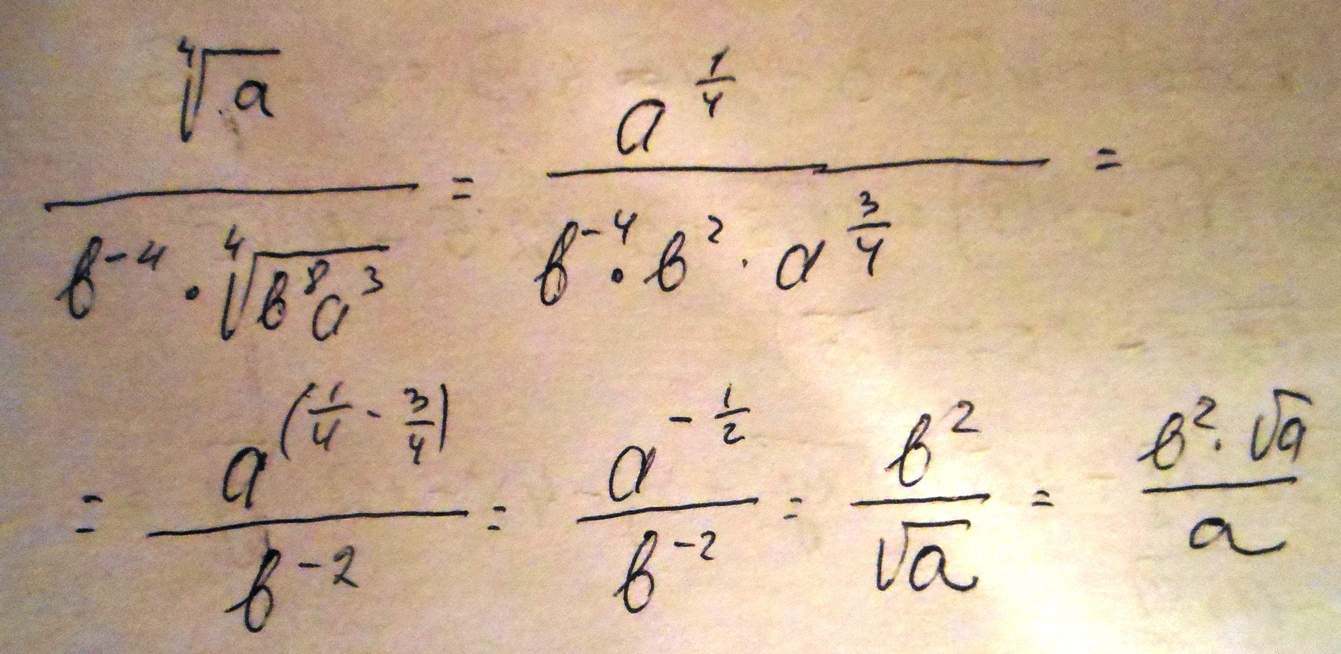 $\frac{\sqrt[4]{a}}{b^{-4} \cdot \sqrt[4]{b^8 a^3}} = \frac{a^{\frac{1}{4}}}{b^{-4} \cdot b^2 \cdot a^{\frac{3}{4}}} =$
$= \frac{a^{(\frac{1}{4} - \frac{3}{4})}}{b^{-2}} = \frac{a^{-\frac{1}{2}}}{b^{-2}} = \frac{b^2}{\sqrt{a}} = \frac{b^2 \cdot \sqrt{a}}{a}$